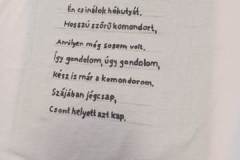 Én csinálok hókutyát.
Hosszú szőrű komondort,
Amilyen még sosem volt.
Így gondolom, úgy gondolom,
Kész is már a komondorom.
Szájában jégcsap,
Csont helyett azt kap.